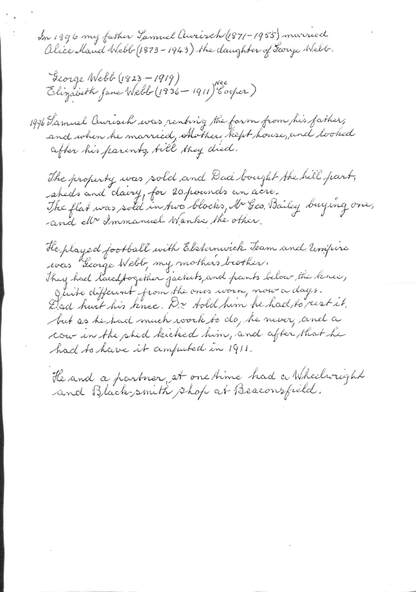 In 1896 my father Samuel Aurisch (1871-1955) married
Alice Maud Webb (1873-1943) the daughter of George Webb.
George Webb (1823-1919)
Elizabeth Jane Webb (1836-1911) (Nee Cooper)
1896 Samuel Aurisch was renting the farm from his father,
and when he married, Mother kept house, and looked
after his parents, till they died.
The property was sold and Dad bought the hill part,
sheds and dairy, for 20 pounds an acre.
The flat was sold in two blocks, Mr Geo. Bailey buying one,
and Mr Immanuel Wanke the other.
He played football with Elsternwick Team and Umpire
was George Webb, my, mother's brother.
They had laced together jackets, and pants below the knee,
quite different from the ones worn, now a days.
Dad hurt his knee. Dr told him he had to rest it,
but as he had much work to do, he never, and a
cow in the shed kicked him, and after, that he
had to have it amputed in 1911.
He and a partner, at one time had a Wheelwright
and Black-smith shop at Beaconsfield.